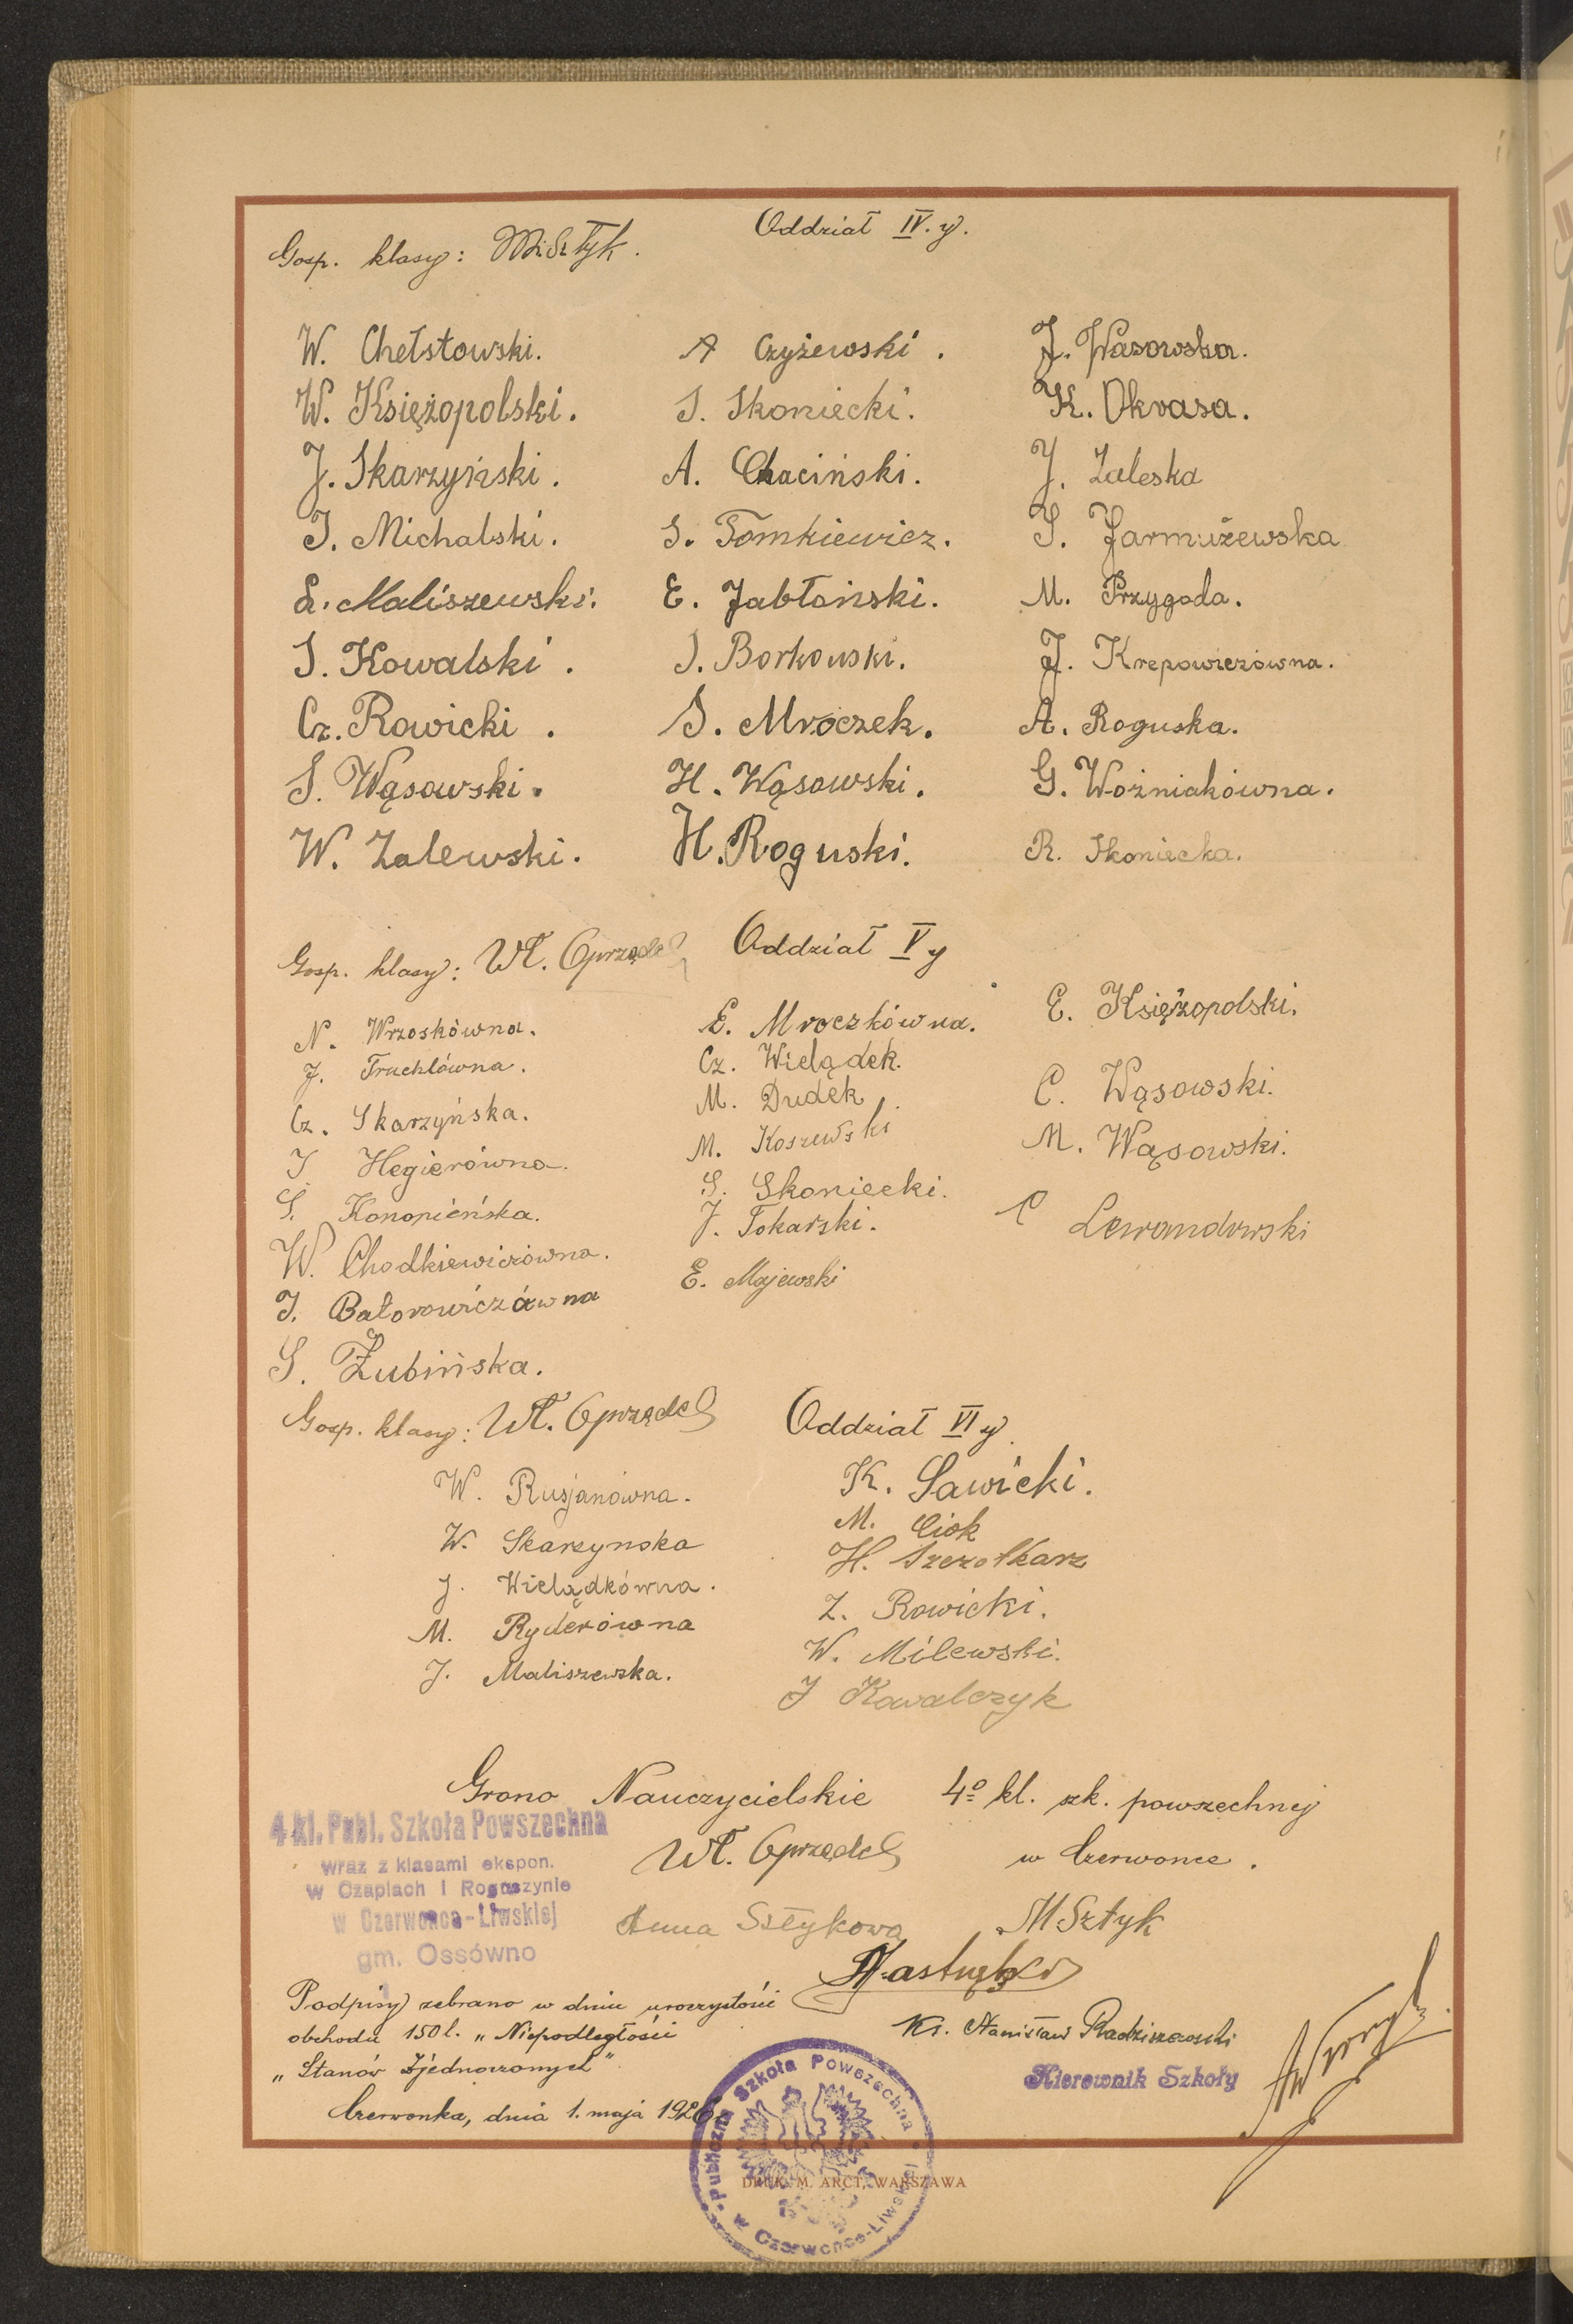 Oddział IV. y.
Gosp. klasy: M. Sztyk.
W. Chełstowski.
W. Księżopolski.
J. Skarzyński.
J. Michalski.
L. Maliszewski.
S. Kowalski.
Cz. Rowicki.
S. Wąsowski.
W. Zalewski.
A Czyżewski.
S. Skoniecki.
A. Chaciński.
S. Tomkiewicz.
E. Jabłoński.
J. Borkowski.
S. Mroczek.
H. Wąsowski.
H. Roguski.
J. Wasowska.
K. Okrasa.
J. Zaleska
S. Jarmużewska
M. Przygoda.
J. Krepowiczówna.
A. Roguska.
G. Woźniakówna.
R. Skoniecka.
Oddział V y
Gosp. klasy: Wł. Oprządek
N. Wrzoskówna.
J. Truchlówna.
Cz. Skarzyńska.
J. Hegierówna.
S. Konopieńska.
W. Chodkiewiczówna.
J. Batorowiczówna
S. Żubińska.
E. Mroczkówna.
Cz. Wielądek.
M. Dudek.
M. Koszewski
S. Skoniecki.
J. Tokarski.
E. Majewski
E. Księżopolski.
C. Wąsowski.
M. Wąsowski.
C Lewandowski
Gosp. klasy: Wł. Oprządek
Oddział VI y.
W. Rusjanówna.
W. Skarzynska
J. Wielądkówna.
M. Ryderówna
J. Maliszewska.
K. Sawicki.
M. Ciok
H. Szczotkarz
Z. Rowicki.
W. Milewski.
J Kowalczyk
Grono Nauczycielskie 4º kl. szk. powszechnej
w Czerwonce.
4 kl. Publ. Szkoła Powszechna
wraz z klasami ekspon.
w Czaplach i Roguszynie
w Czerwonce-Liwskiej
gm. Ossówno
Wł. Oprządek
Anna Sztykowa
M Sztyk
Ks. Stanisław Radziszewski
Kierownik Szkoły
Podpisy zebrano w dniu uroczystości
obchodu 150 l. „Niepodległości
„Stanów Zjednoczonych"
Czerwonka, dnia 1. maja 1926
Publiczna Szkoła Powszechna
w Czerwonce-Liwskiej
DRUK. M. ARCT, WARSZAWA